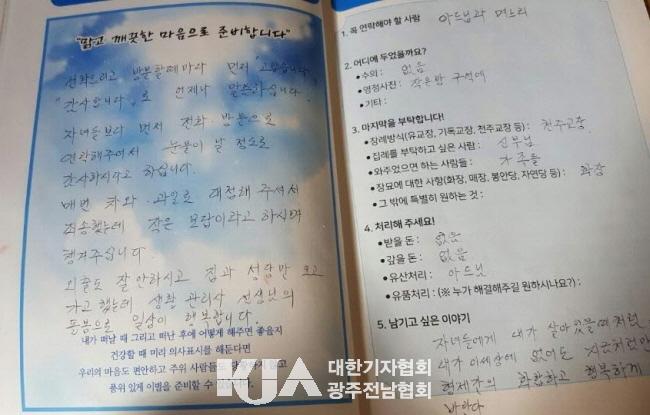 "맑고 깨끗한 마음으로 준비합니다"
전화드리고 방문할때마다 먼저 "고맙습니다,
"감사합니다"로 언제나 말씀하십니다.
자녀들보다 먼저 전화 방문으로
연락해주어서 눈물이 날 정도로
감사하시다고 하십니다.
매번 차와 과일로 대접해 주셔서
죄송했는데 작은 보답이라고 하시며
챙겨주십니다.
외출도 잘 안하시고 집과 성당만 오고
가고 했는데 생활 관리사 선생님의
동봄으로 일상이 행복합니다.
내가 떠날 때 그리고 떠난 후에 어떻게 해주면 좋을지
건강할 때 미리 의사표시를 해둔다면
우리의 마음도 편안하고 주위 사람들도 않고
품위 있게 이별을 준비할 수 있습니다
1. 꼭 연락해야 할 사람 아드님과 며느리
2. 어디에 두었을까요?
•수의: 없음
•영정사진: 작은방 구석에
•기타:
3. 마지막을 부탁합니다!
•장례방식(유교장, 기독교장, 천주교장 등): 천주교장
•집례를 부탁하고 싶은 사람: 신부님
•와주었으면 하는 사람들: 가족들
•장묘에 대한 사항(화장, 매장, 봉안당, 자연장 등): 화장
•그 밖에 특별히 원하는 것:
4. 처리해 주세요!
•받을 돈: 없음
•갚을 돈: 없음
•유산처리: 아드님
•유품처리: (※ 누가 해결해주길 원하시나요?):
5. 남기고 싶은 이야기
자녀들에게 내가 살아있을때처럼
내가 이세상에 없어도 지금처럼만
형제간의 화합하고 행복하게
바란다
KJA 대한기자협회
광주전남협회